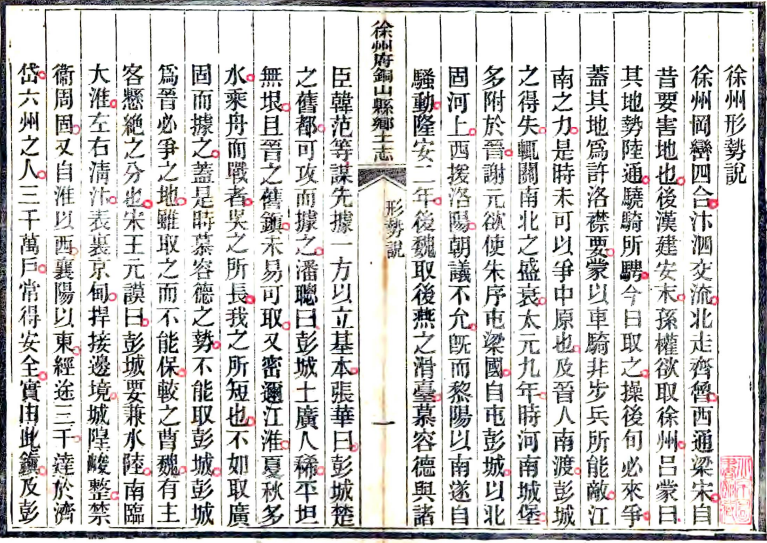 徐州形勢說
徐州岡巒四合汴泗交流北走齊魯西通梁宋自
昔要害地也後漢建安末孫權欲取徐州呂蒙曰
其地勢陸通驍騎所騁今日取之操後旬必來爭
蓋其地爲許洛襟要蒙以車騎非步兵所能敵江
南之力是時未可以爭中原也及晉人南渡彭城
之得失輒關南北之盛衰太元九年時河南城堡
多附於晉謝元欲使朱序屯梁國自屯彭城以北
固河上西援洛陽朝議不允旣而黎陽以南遂自
騷動隆安二年後魏取後燕之滑臺慕容德與諸
徐州府銅山縣鄉土志
形勢說
一
臣韓范等謀先據一方以立基本張華曰彭城楚
之舊都可攻而據之潘聰曰彭城土廣人稀平坦
無垠且晉之舊鎮未易可取又密邇江淮夏秋多
水乘舟而戰者吳之所長我之所短也不如取廣
固而據之蓋是時慕容德之勢不能取彭城彭城
爲晉必爭之地雖取之而不能保較之曹魏有主
客懸絶之分也宋王元謨曰彭城要兼水陸南臨
大淮左右淸汴表裏京甸捍接邊境城隍峻整禁
衞周固又自淮以西襄陽以東經途三千達於濟
岱六州之人三千萬戶常得安全實由此鎮及彭